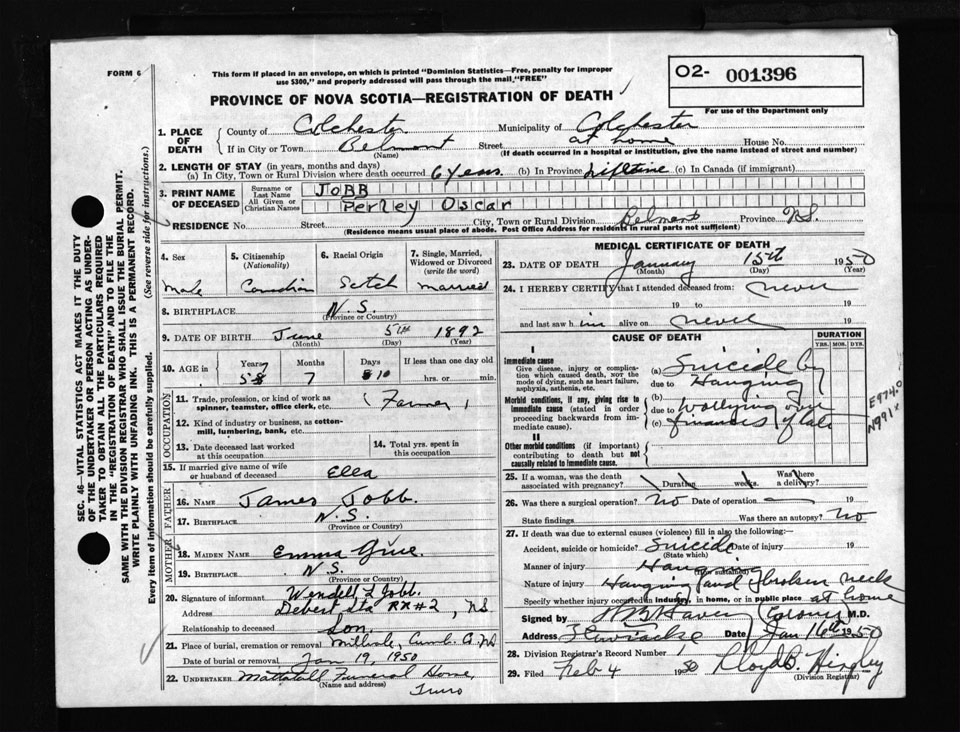 FORM 6
This form if placed in an envelope, on which is printed "Dominion Statistics—Free, penalty for improper
use $300," and properly addressed will pass through the mail, "FREE"
02- 001396
For use of the Department only
PROVINCE OF NOVA SCOTIA—REGISTRATION OF DEATH
1. PLACE OF DEATH
County of Colchester Municipality of Colchester
If in City or Town Belmont Street at home House No.
(Name) (If death occurred in a hospital or institution, give the name instead of street and number)
2. LENGTH OF STAY (in years, months and days)
(a) In City, Town or Rural Division where death occurred 6 years. (b) In Province lifetime (c) In Canada (if immigrant)
3. PRINT NAME OF DECEASED
Surname or Last Name JOBB
All Given or Christian Names Perley Oscar
RESIDENCE No. Street City, Town or Rural Division Belmont Province N.S.
(Residence means usual place of abode. Post Office Address for residents in rural parts not sufficient)
4. Sex 5. Citizenship (Nationality) 6. Racial Origin 7. Single, Married, Widowed or Divorced (write the word)
Male Canadian Scotch married
8. BIRTHPLACE N.S.
(Province or Country)
9. DATE OF BIRTH June 5th 1892
(Month) (Day) (Year)
10. AGE in Years Months Days If less than one day old
7 10 hrs. or min.
OCCUPATION
11. Trade, profession, or kind of work as spinner, teamster, office clerk, etc. Farmer
12. Kind of industry or business, as cotton-mill, lumbering, bank, etc.
13. Date deceased last worked at this occupation
14. Total yrs. spent in this occupation
15. If married give name of wife or husband of deceased Ella
FATHER
16. NAME James Jobb.
17. BIRTHPLACE N.S.
(Province or Country)
MOTHER
18. MAIDEN NAME Emma
19. BIRTHPLACE N.S.
(Province or Country)
20. Signature of informant Wendell L Jobb.
Address Debert Sta RR#2, NS
Relationship to deceased Son.
21. Place of burial, cremation or removal Millvale, Cumb. Co. NS
Date of burial or removal Jan 19, 1950
22. UNDERTAKER Mattatall Funeral Home,
(Name and address) Truro
MEDICAL CERTIFICATE OF DEATH
23. DATE OF DEATH January 15th 1950
(Month) (Day) (Year)
24. I HEREBY CERTIFY that I attended deceased from: never
19 to 19
and last saw him alive on never 19
CAUSE OF DEATH
DURATION
YRS. MOS. DYS.
I
Immediate cause
Give disease, injury or complication which caused death, not the mode of dying, such as heart failure, asphyxia, asthenia, etc.
(a) Suicide by
due to Hanging
Morbid conditions, if any, giving rise to immediate cause (stated in order proceeding backwards from immediate cause).
(b)
due to worrying over
(c) finances of late
II
Other morbid conditions (if important) contributing to death but not causally related to immediate cause.
E974.0
N991x
25. If a woman, was the death associated with pregnancy? Duration weeks. Was there a delivery?
26. Was there a surgical operation? No Date of operation — 19
State findings Was there an autopsy? No
27. If death was due to external causes (violence) fill in also the following:
Accident, suicide or homicide? Suicide Date of injury 19
(State which)
Manner of injury Hanging
(How sustained)
Nature of injury Hanging and broken neck
Specify whether injury occurred in industry, in home, or in public place at home
Signed by Coroner M.D.
Address Date Jan 16th 1950
28. Division Registrar's Record Number 1
29. Filed Feb 4 1950 Lloyd B.
(Division Registrar)
SEC. 46—VITAL STATISTICS ACT MAKES IT THE DUTY
OF THE UNDERTAKER OR PERSON ACTING AS UNDER-
TAKER TO OBTAIN ALL THE PARTICULARS REQUIRED
IN THE "REGISTRATION OF DEATH" AND TO FILE THE
SAME WITH THE DIVISION REGISTRAR WHO SHALL ISSUE THE BURIAL PERMIT.
WRITE PLAINLY WITH UNFADING INK. THIS IS A PERMANENT RECORD.
Every item of information should be carefully supplied. (See reverse side for instructions.)